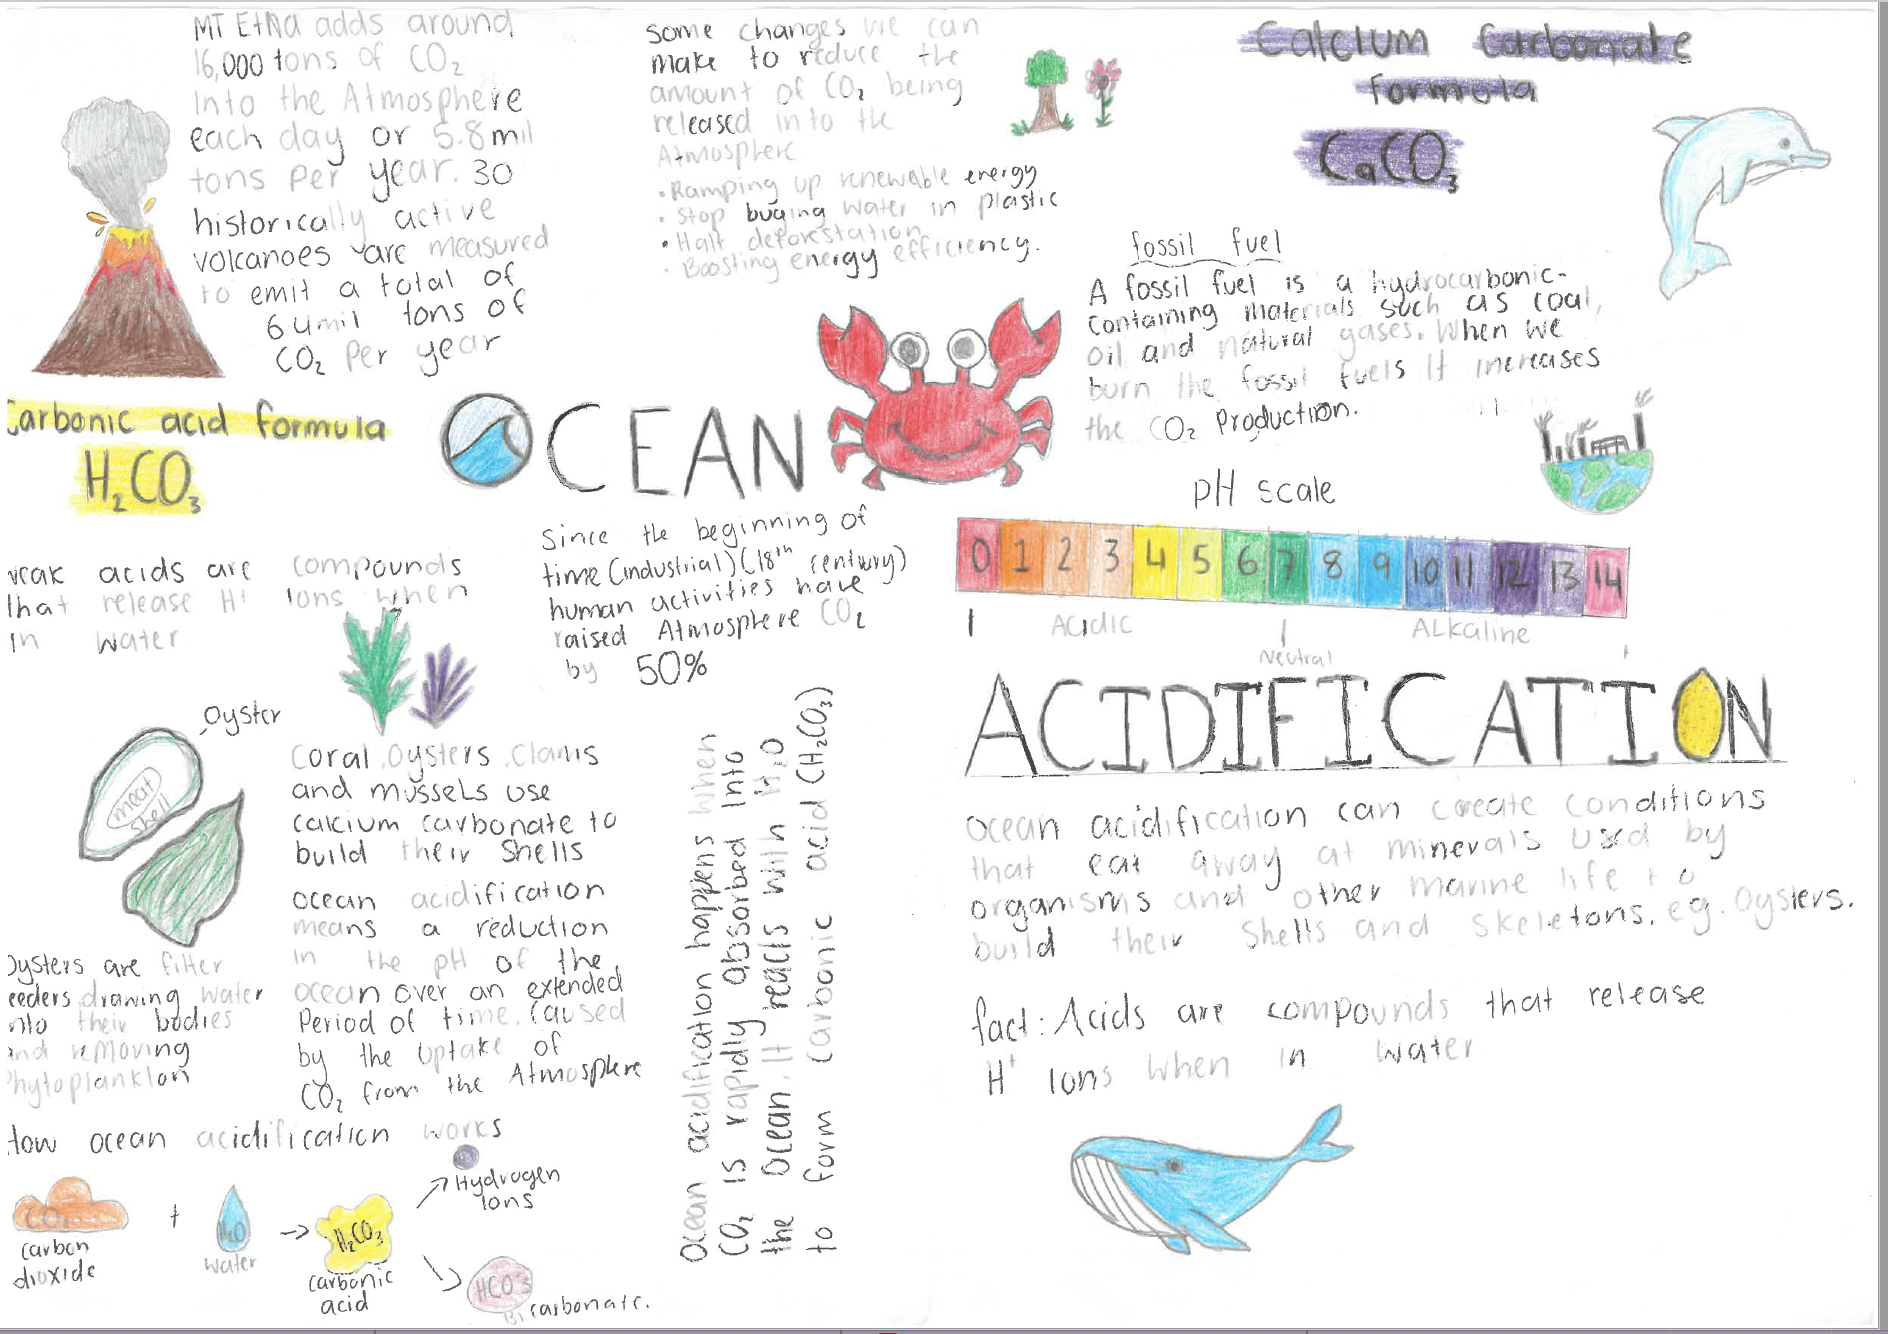 MT EtNa adds around
16,000 tons of CO₂
Into the Atmosphere
each day or 5.8mil
tons Per year. 30
historically active
volcanoes are measured
to emit a total of
64mil tons of
CO₂ Per year
some changes we can
make to reduce the
amount of CO₂ being
released into the
Atmosphere
• Ramping up renewable energy
• Stop buying water in plastic
• Halt deforestation
• Boosting energy efficiency.
Calcium Carbonate
formula
CaCO₃
fossil fuel
A fossil fuel is a hydrocarbonic-
containing materials such as coal,
oil and natural gases. When we
burn the fossil fuels It increases
the CO₂ Production.
Carbonic acid formula
H₂CO₃
OCEAN
pH scale
0 1 2 3 4 5 6 7 8 9 10 11 12 13 14
Acidic
Neutral
ALkaline
weak acids are compounds
that release H⁺ Ions when
In water
Since the beginning of
time (industrial) (18th century)
human activities have
raised Atmosphere CO₂
by 50%
ACIDIFICATION
Oyster
meat
shell
Coral, Oysters, Clams
and mussels use
calcium carbonate to
build their Shells
ocean acidification
means a reduction
In the pH of the
ocean over an extended
Period of time. Caused
by the uptake of
CO₂ from the Atmosphere
Oysters are filter
feeders, drawing water
into their bodies
and removing
Phytoplankton
Ocean acidification happens When
CO₂ is rapidly absorbed Into
the Ocean. It reacts with H₂O
to form Carbonic acid (H₂CO₃)
ocean acidification can create conditions
that eat away at minerals used by
organisms and other marine life to
build their Shells and Skeletons. eg. Oysters.
fact: Acids are compounds that release
H⁺ Ions when in water
How ocean acidification works
CO₂
carbon
dioxide
+
H₂O
water
H₂CO₃
carbonic
acid
Hydrogen
Ions
HCO⁻₃
Bicarbonate.